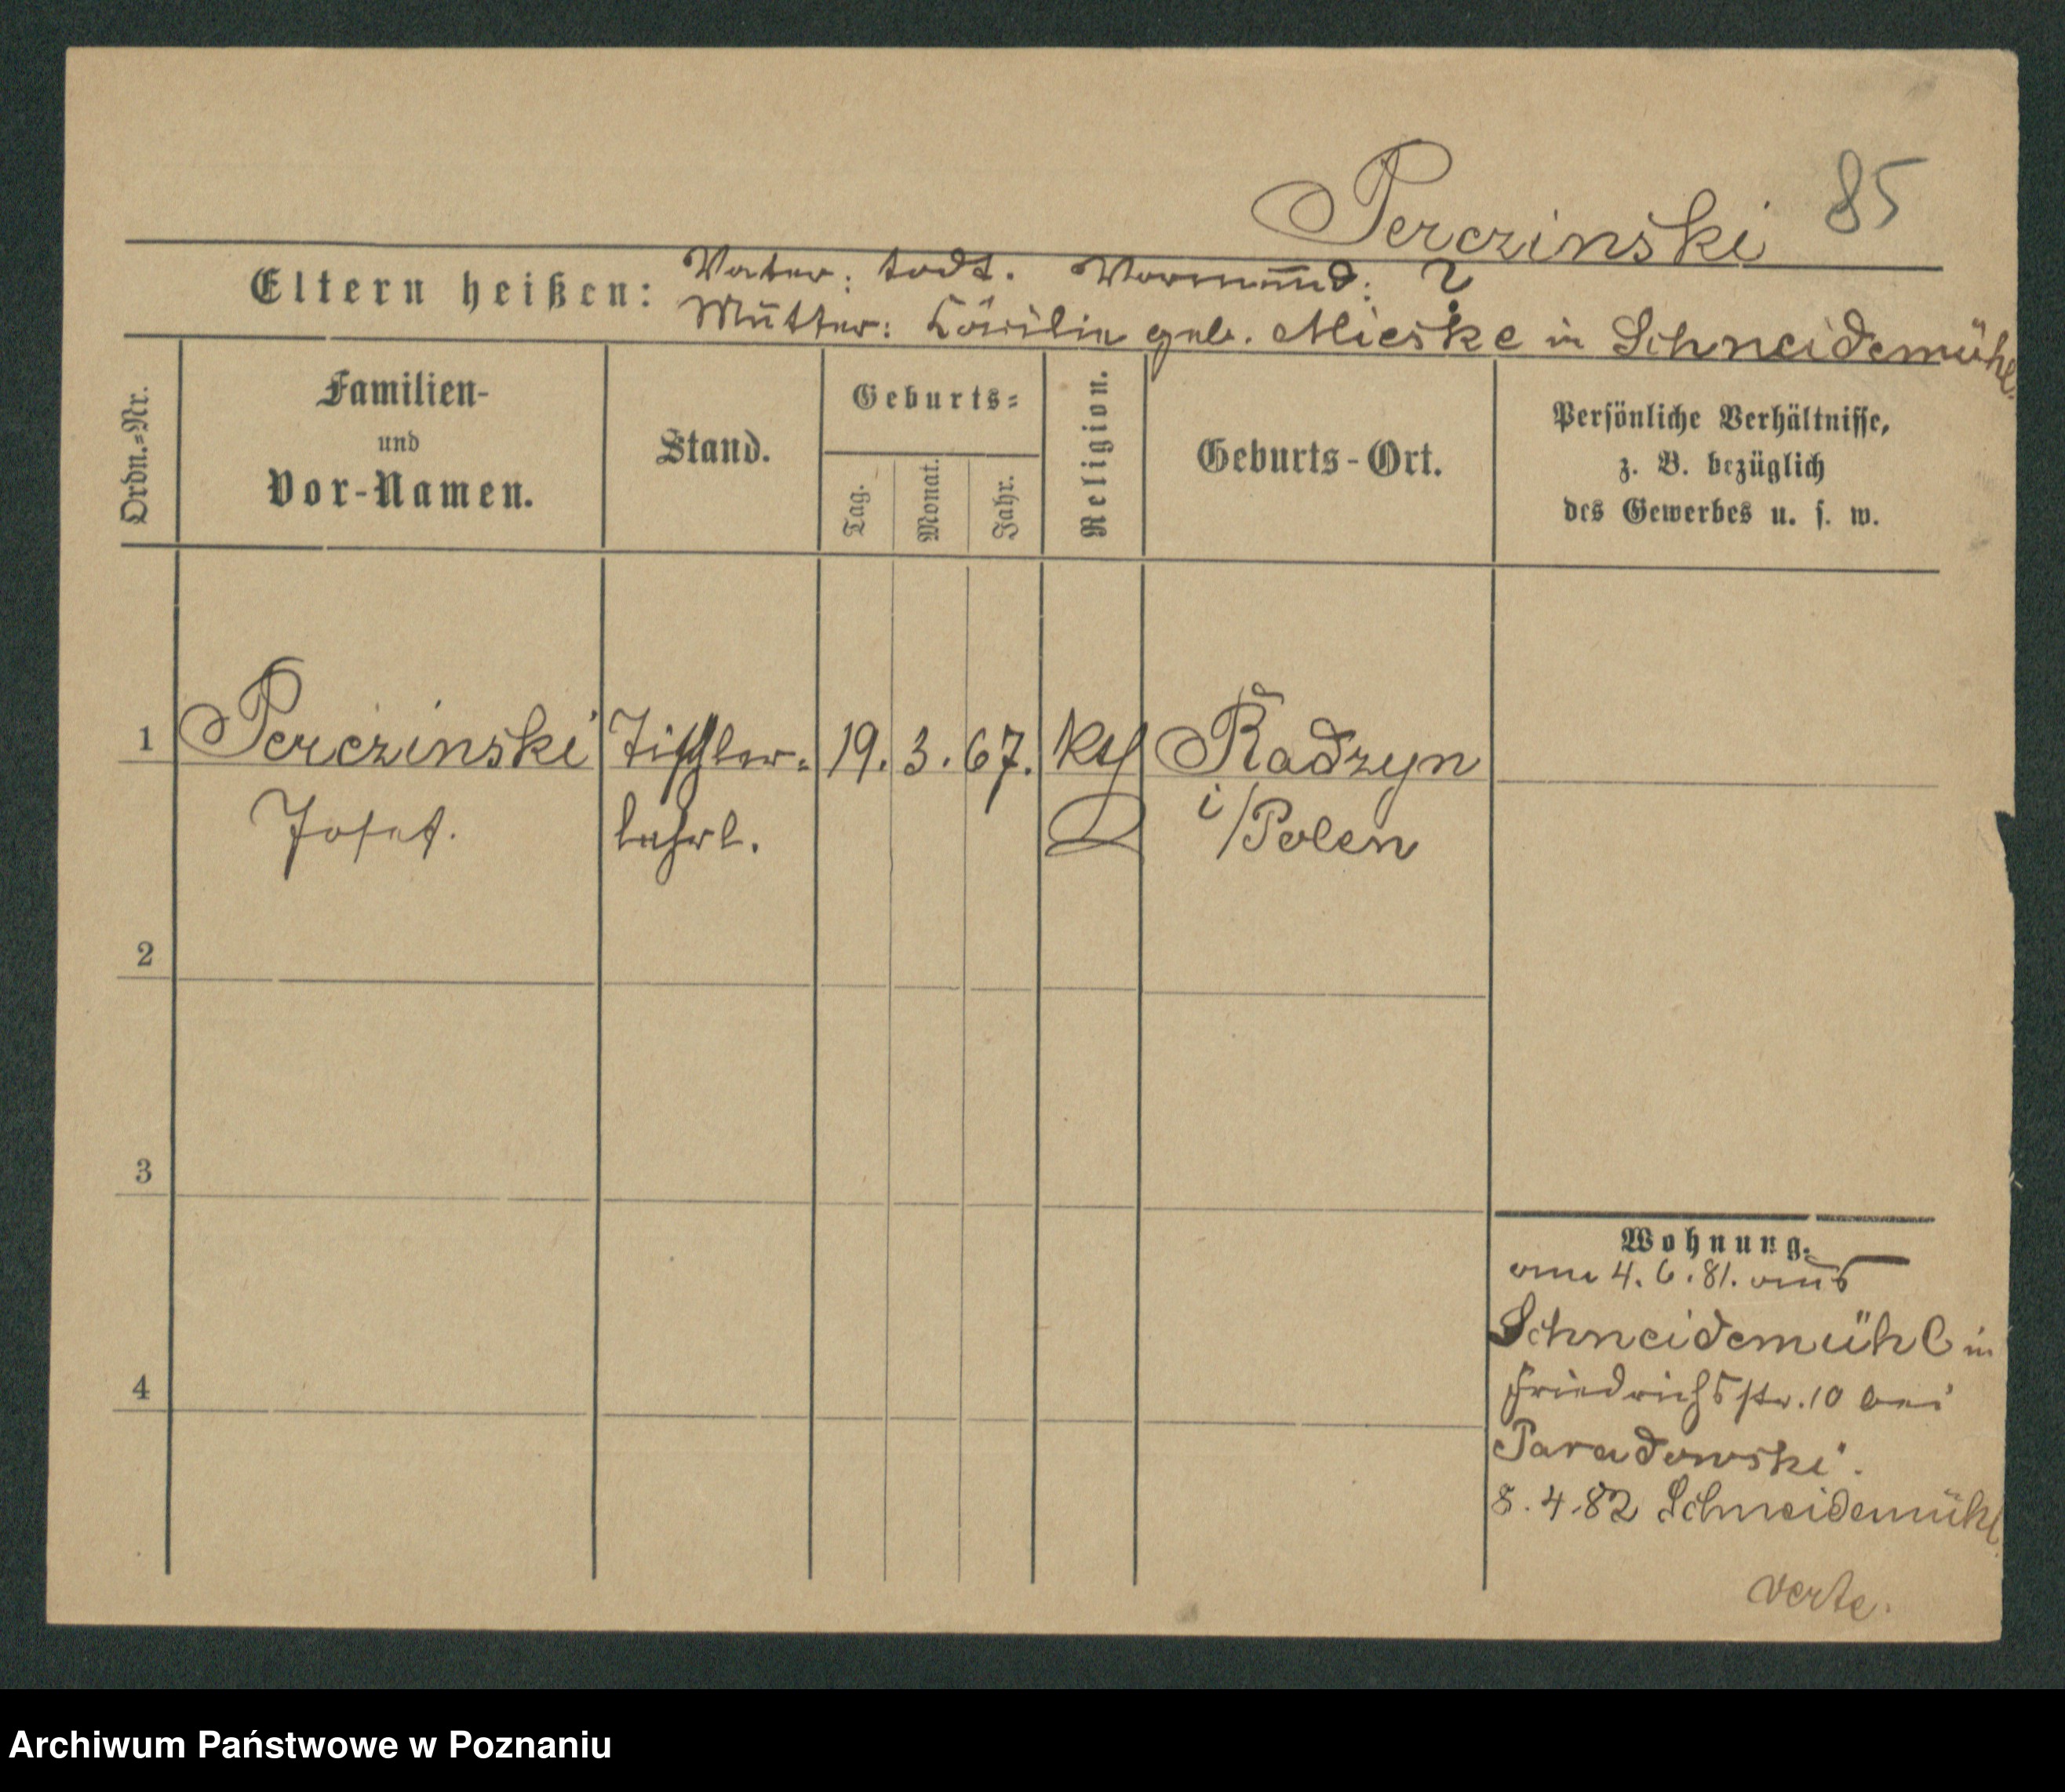 Perczinski 85
Eltern heißen: Vater: todt. Vormund: ?
Mutter: Cäcilie geb. Mieske in Schneidemühl.
Ordn.=Nr.
Familien-
und
Vor-Namen.
Stand.
Geburts=
Tag.
Monat.
Jahr.
Religion.
Geburts-Ort.
Persönliche Verhältnisse,
z. B. bezüglich
des Gewerbes u. s. w.
1 Perczinski Tischler= 19. 3. 67. kth Radzyn
Josef. lehrl. i/Polen
2
3
4
Wohnung.
am 4. 6. 81. aus
Schneidemühl in
Friedrichsstr. 10 bei
Paradowski.
8. 4. 82 Schneidemühl.
verte.
Archiwum Państwowe w Poznaniu